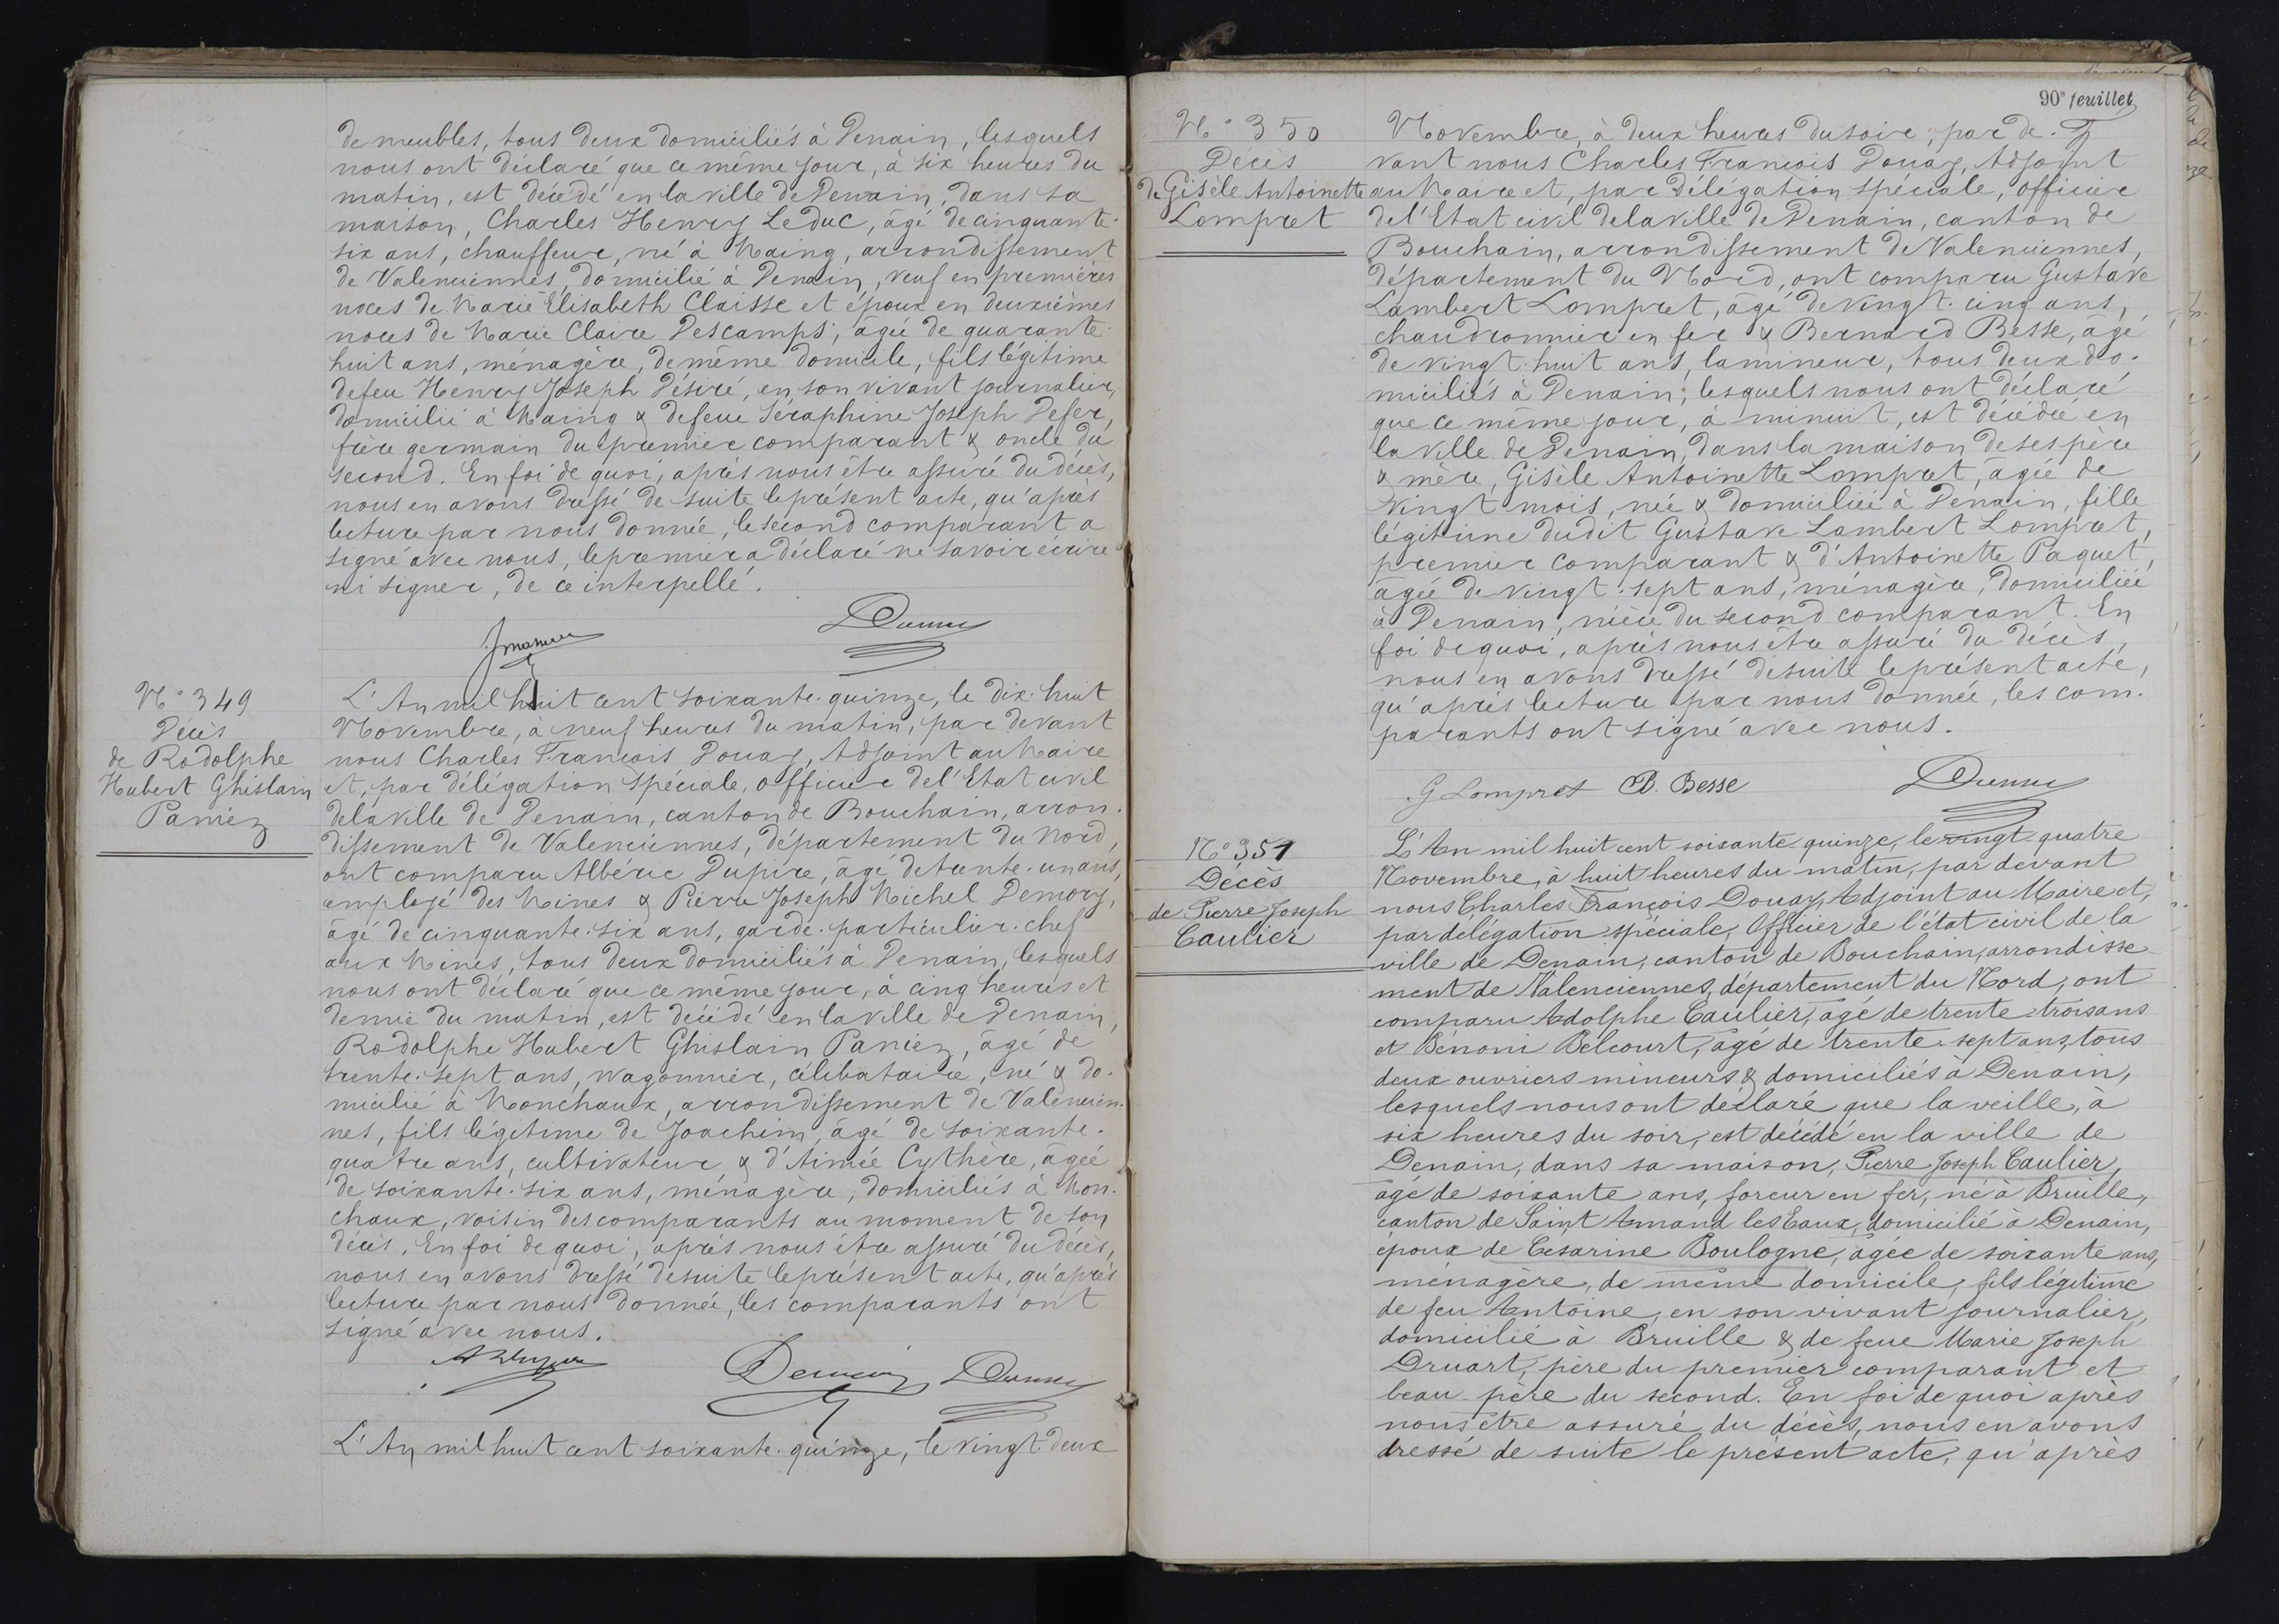 de meubles, tous deux domiciliés à Denain, lesquels
nous ont déclaré que ce même jour, à six heures du
matin, est décédé en la ville de Denain, dans sa
maison, Charles Henry Leduc, âgé de cinquante-
six ans, chauffeur, né à Maing, arrondissement
de Valenciennes, domicilié à Denain, veuf en premières
noces de Marie Elisabeth Claisse et époux en deuxièmes
noces de Marie Claire Descamps, âgée de quarante-
huit ans, ménagère, de même domicile, fils légitime
de feu Henry Joseph Désiré, en son vivant journalier,
domicilié à Maing & de feue Séraphine Joseph Defer,
frère germain du premier comparant & oncle du
second. En foi de quoi, après nous être assuré du décès,
nous en avons dressé de suite le présent acte, qu'après
lecture par nous donnée, le second comparant a
signé avec nous, le premier a déclaré ne savoir écrire
ni signer, de ce interpellé.
N° 349
Décès
de Rodolphe
Hubert Ghislain
Paniez
L'An mil huit cent soixante-quinze, le dix-huit
Novembre, à neuf heures du matin, par devant
nous Charles François Douay, Adjoint au Maire
et, par délégation spéciale, officier de l'Etat civil
de la ville de Denain, canton de Bouchain, arron-
dissement de Valenciennes, département du Nord,
ont comparu Albéric Dupire, âgé de trente-un ans,
employé des Mines & Pierre Joseph Michel Demory,
âgé de cinquante-six ans, garde-particulier-chef
aux Mines, tous deux domiciliés à Denain, lesquels
nous ont déclaré que ce même jour, à cinq heures et
demie du matin, est décédé en la ville de Denain,
Rodolphe Hubert Ghislain Paniez, âgé de
trente-sept ans, wagonnier, célibataire, né & do-
micilié à Monchaux, arrondissement de Valencien-
nes, fils légitime de Joachim, âgé de soixante-
quatre ans, cultivateur & d'Aimée Cythère, âgée
de soixante-six ans, ménagère, domiciliés à Mon-
chaux, voisin des comparants au moment de son
décès. En foi de quoi, après nous être assuré du décès,
nous en avons dressé de suite le présent acte, qu'après
lecture par nous donnée, les comparants ont
signé avec nous.
L'An mil huit cent soixante-quinze, le vingt-deux
90e feuillet
N° 350
Décès
de Gisèle Antoinette
Lompret
Novembre, à deux heures du soir, par de-
vant nous Charles François Douay, Adjoint
au Maire et, par délégation spéciale, officier
de l'Etat civil de la ville de Denain, canton de
Bouchain, arrondissement de Valenciennes,
département du Nord, ont comparu Gustave
Lambert Lompret, âgé de vingt-cinq ans,
chaudronnier en fer & Bernard Besse, âgé
de vingt-huit ans, lamineur, tous deux do-
miciliés à Denain; lesquels nous ont déclaré
que ce même jour, à minuit, est décédée en
la ville de Denain, dans la maison de ses père
& mère, Gisèle Antoinette Lompret, âgée de
vingt mois, née & domiciliée à Denain, fille
légitime dudit Gustave Lambert Lompret,
premier comparant & d'Antoinette Paquet,
âgée de vingt-sept ans, ménagère, domiciliée
à Denain, nièce du second comparant. En
foi de quoi, après nous être assuré du décès,
nous en avons dressé de suite le présent acte,
qu'après lecture par nous donnée, les com-
parants ont signé avec nous.
G Lompret B. Besse
N° 351
Décès
de Pierre Joseph
Caulier
L'An mil huit cent soixante quinze, le vingt quatre
Novembre, à huit heures du matin, par devant
nous Charles François Douay, Adjoint au Maire et,
par délégation spéciale, Officier de l'état civil de la
ville de Denain, canton de Bouchain, arrondisse
ment de Valenciennes, département du Nord, ont
comparu Adolphe Caulier, âgé de trente trois ans
et Bénoni Bélcourt, âgé de trente-sept ans, tous
deux ouvriers mineurs & domiciliés à Denain,
lesquels nous ont déclaré que la veille, à
six heures du soir, est décédé en la ville de
Denain, dans sa maison, Pierre Joseph Caulier,
âgé de soixante ans, foreur en fer, né à Bruille,
canton de Saint Amand les Eaux, domicilié à Denain,
époux de Césarine Boulogne, âgée de soixante ans,
ménagère, de même domicile, fils légitime
de feu Antoine, en son vivant journalier,
domicilié à Bruille & de feue Marie Joseph
Druart, père du premier comparant et
beau-père du second. En foi de quoi après
nous être assuré du décès, nous en avons
dressé de suite le présent acte, qu'après